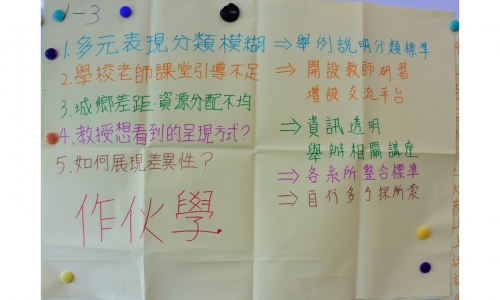 1-3
1.多元表現分類模糊 ⇒舉例說明分類標準
2.學校老師課堂引導不足 ⇒開設教師研習
增設交流平台
3.城鄉差距:資源分配不均 ⇒資訊透明
舉辦相關講座
4.教授想看到的呈現方式? ⇒各系所整合標準
5.如何展現差異性? ⇒自行多方探所索.
作伙學.